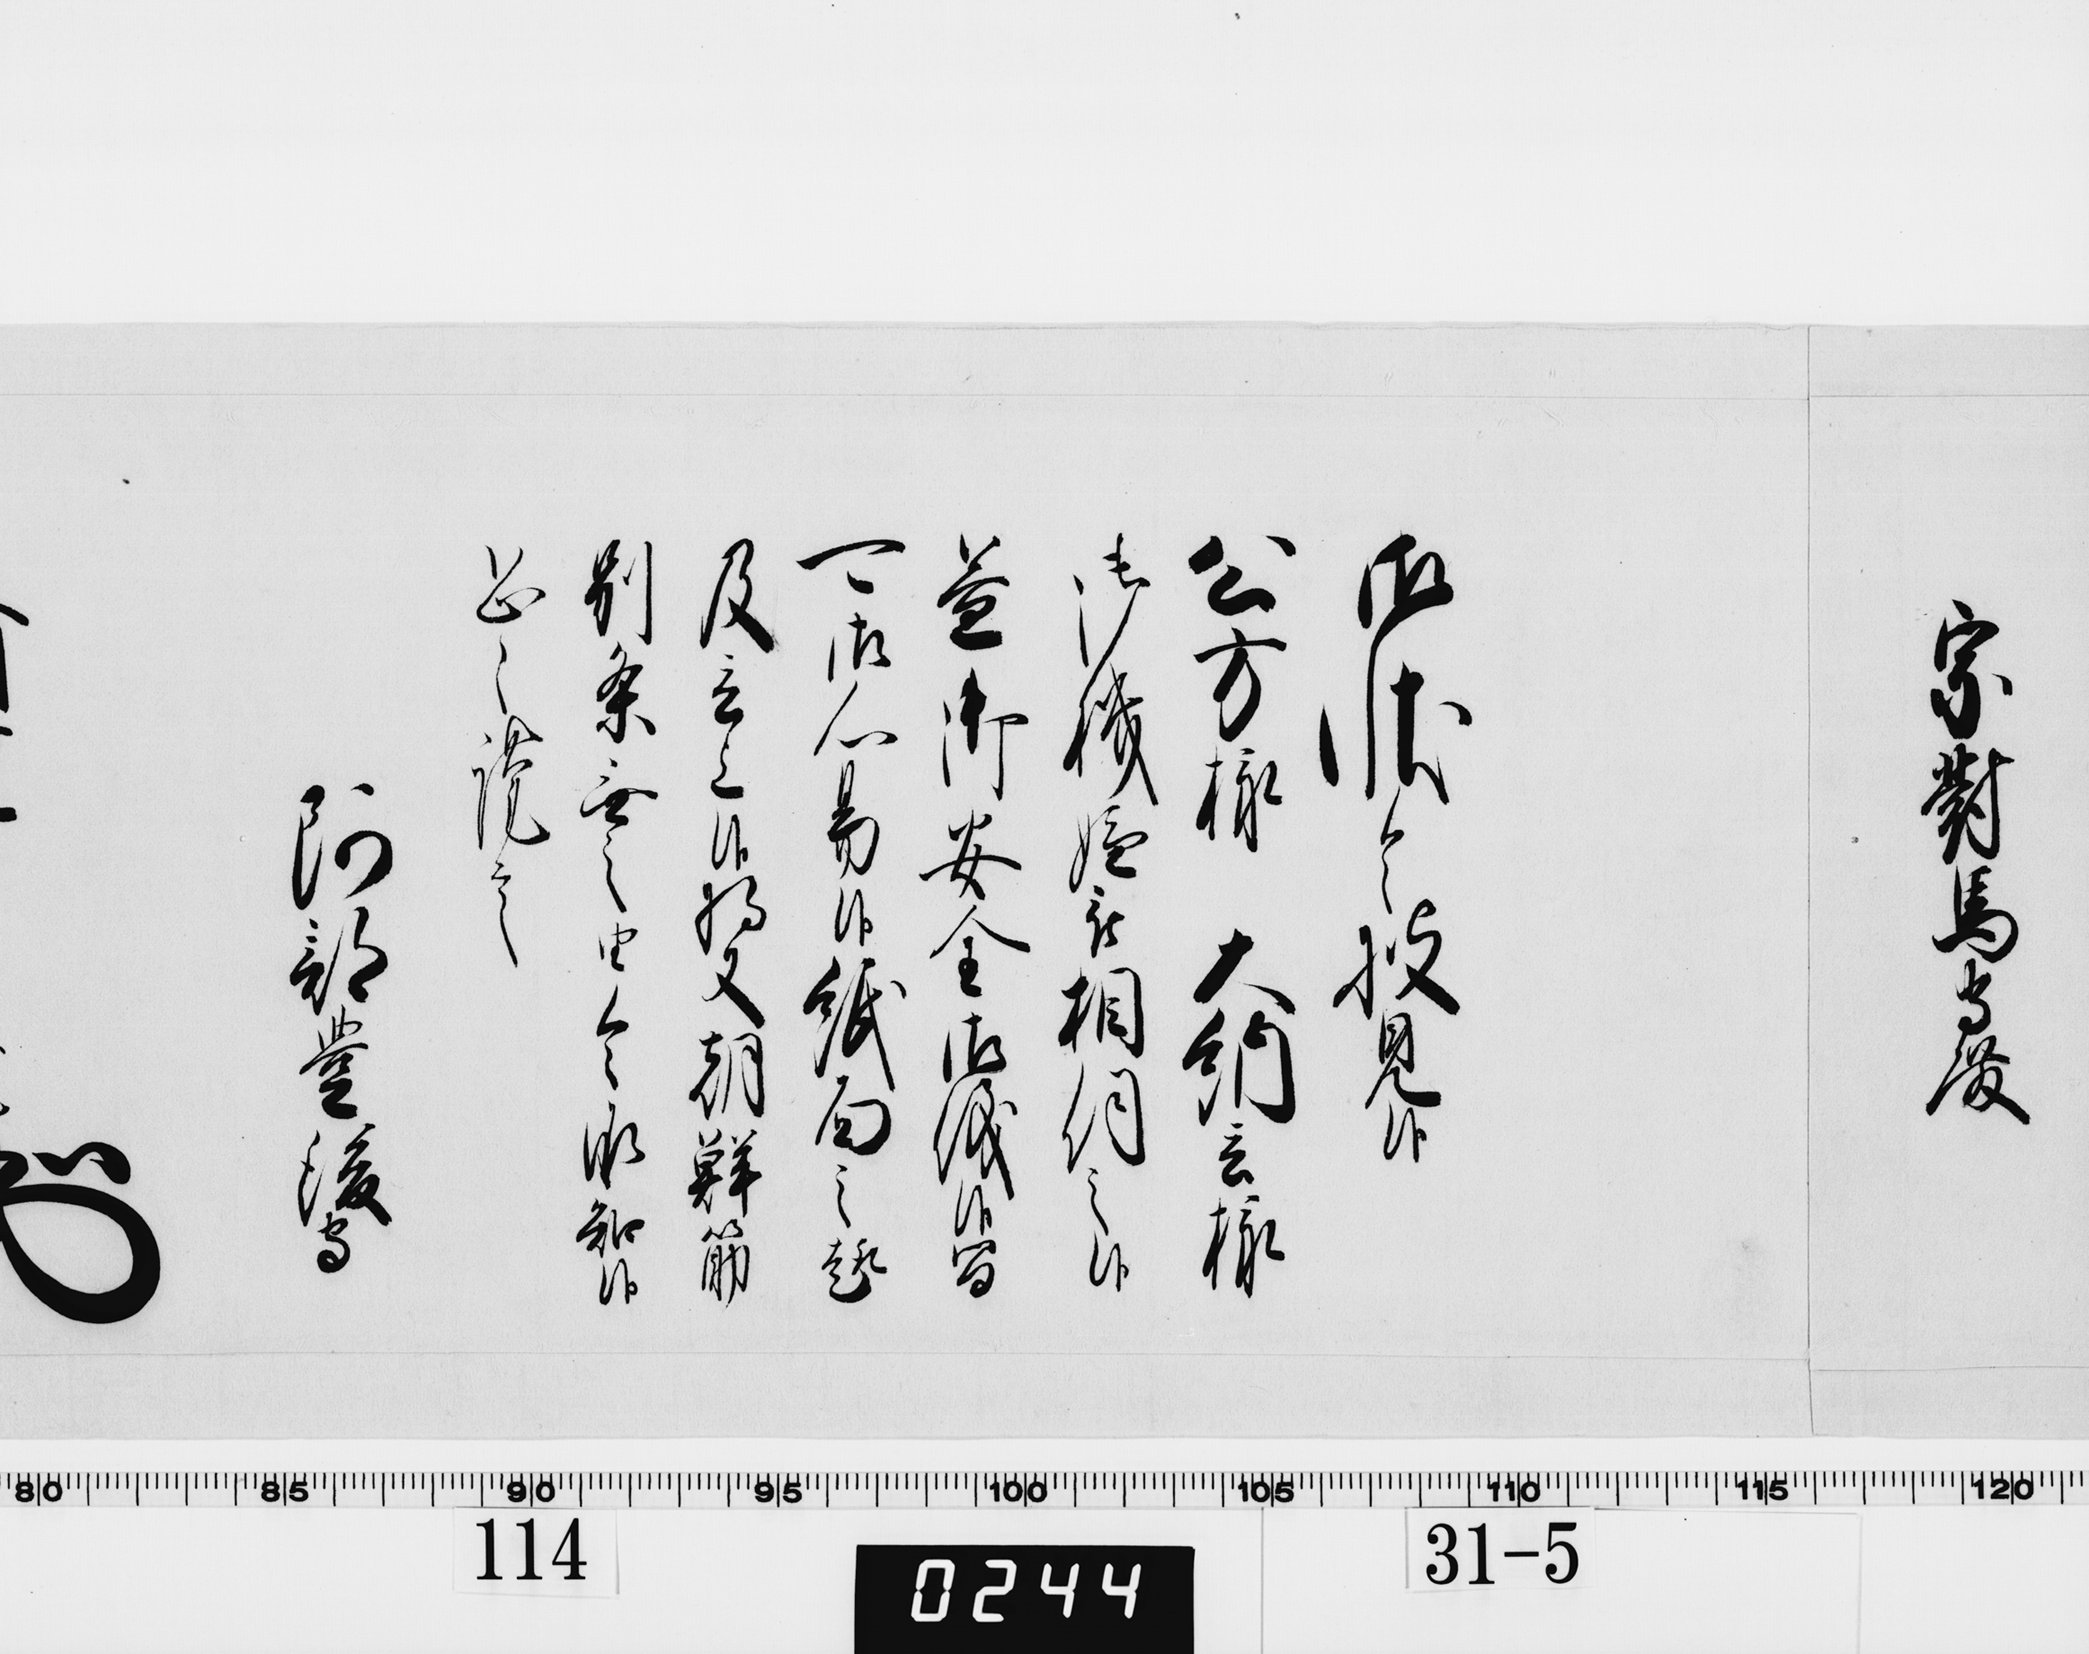 宗對馬守殿
御状令披見候
公方様 大納言様
御機嫌被相伺之候
益御安全御儀候間
可御心易候紙面之趣
及言上候将又朝鮮筋
別条無之由令承知候
恐々謹言
阿部豊後守
80 85 90 95 100 105 110 115 120
114
31-5
0244